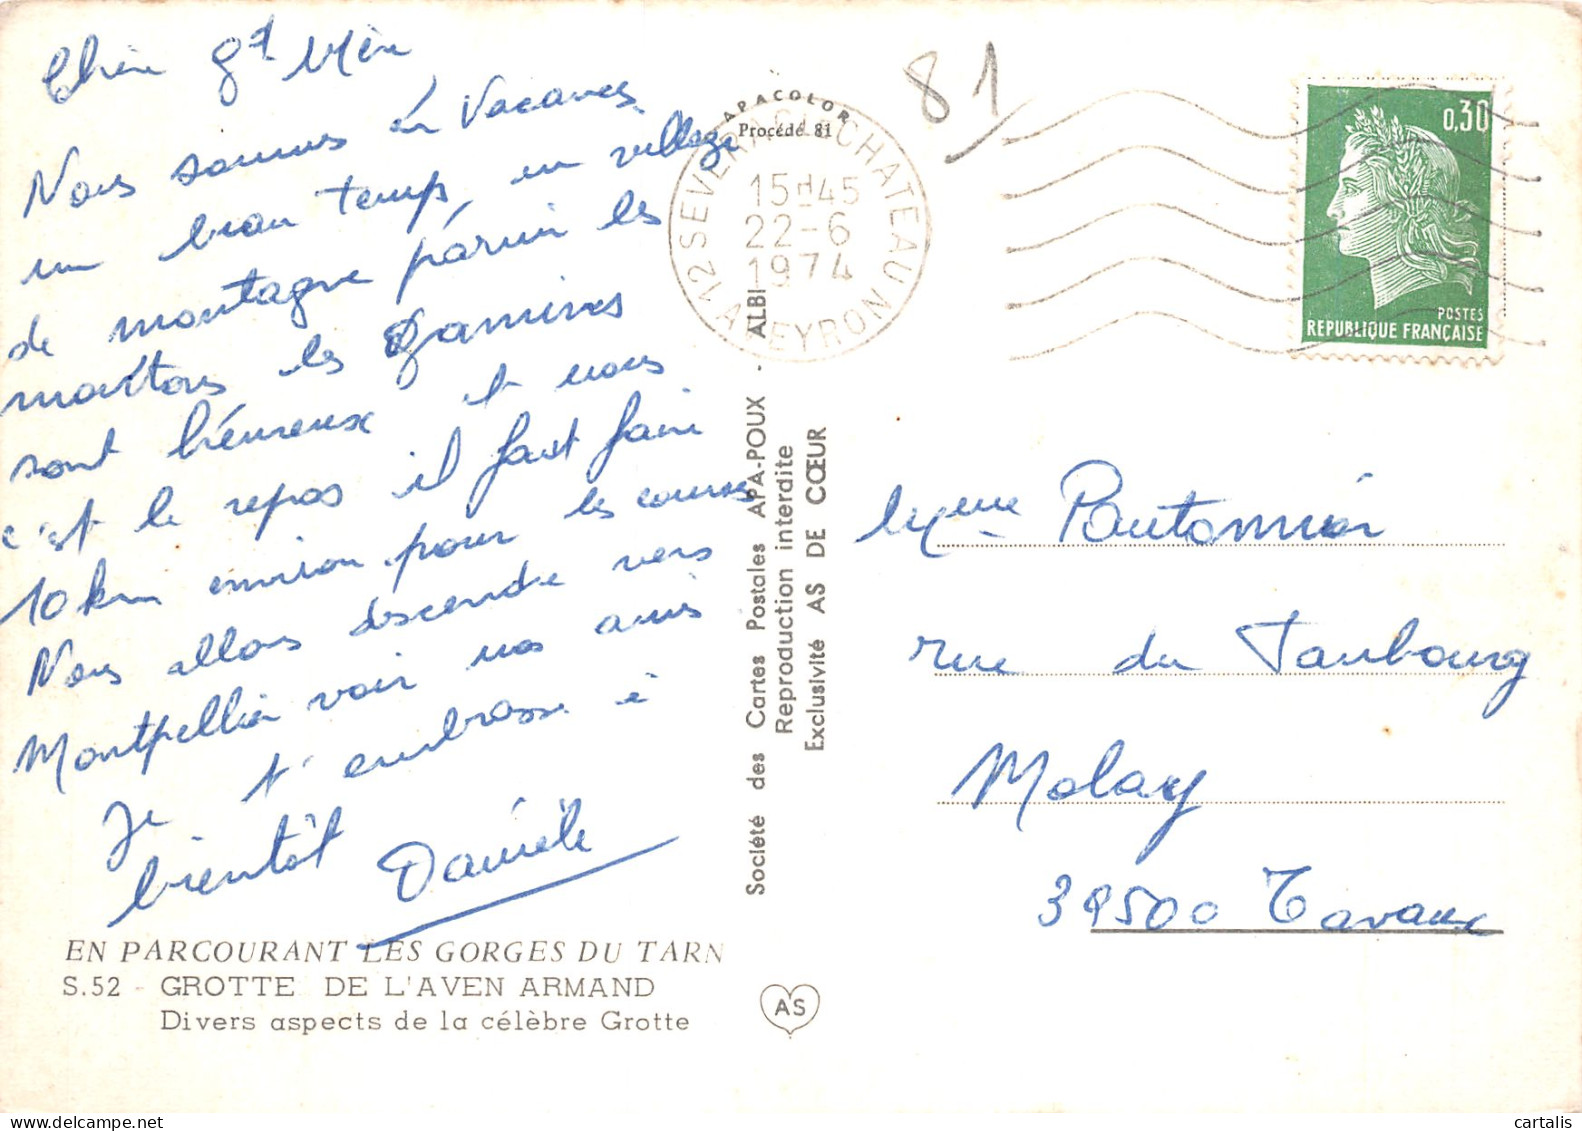 Chère gd Mère
Nous sommes en Vacances
un beau temps, un village
de montagne parmi les
moutons les gamines
sont héureux et nous
c'est le repos il faut faire
10 km environ pour les courses
Nous allons descendre vers
Montpellier voir nos amis
Je t'embrasse à
bientôt Danièle
EN PARCOURANT LES GORGES DU TARN
S.52 - GROTTE DE L'AVEN ARMAND
Divers aspects de la célèbre Grotte
APACOLOR
Procédé 81
Société des Cartes Postales APA-POUX - ALBI
Reproduction interdite
Exclusivité AS DE CŒUR
AS
81
12 SEVERAC-LE-CHATEAU
15H45
22-6
1974
AVEYRON
0,30
POSTES
REPUBLIQUE FRANÇAISE
Mme
rue du Faubourg
Molay
39500 Tavaux
cartalis.com